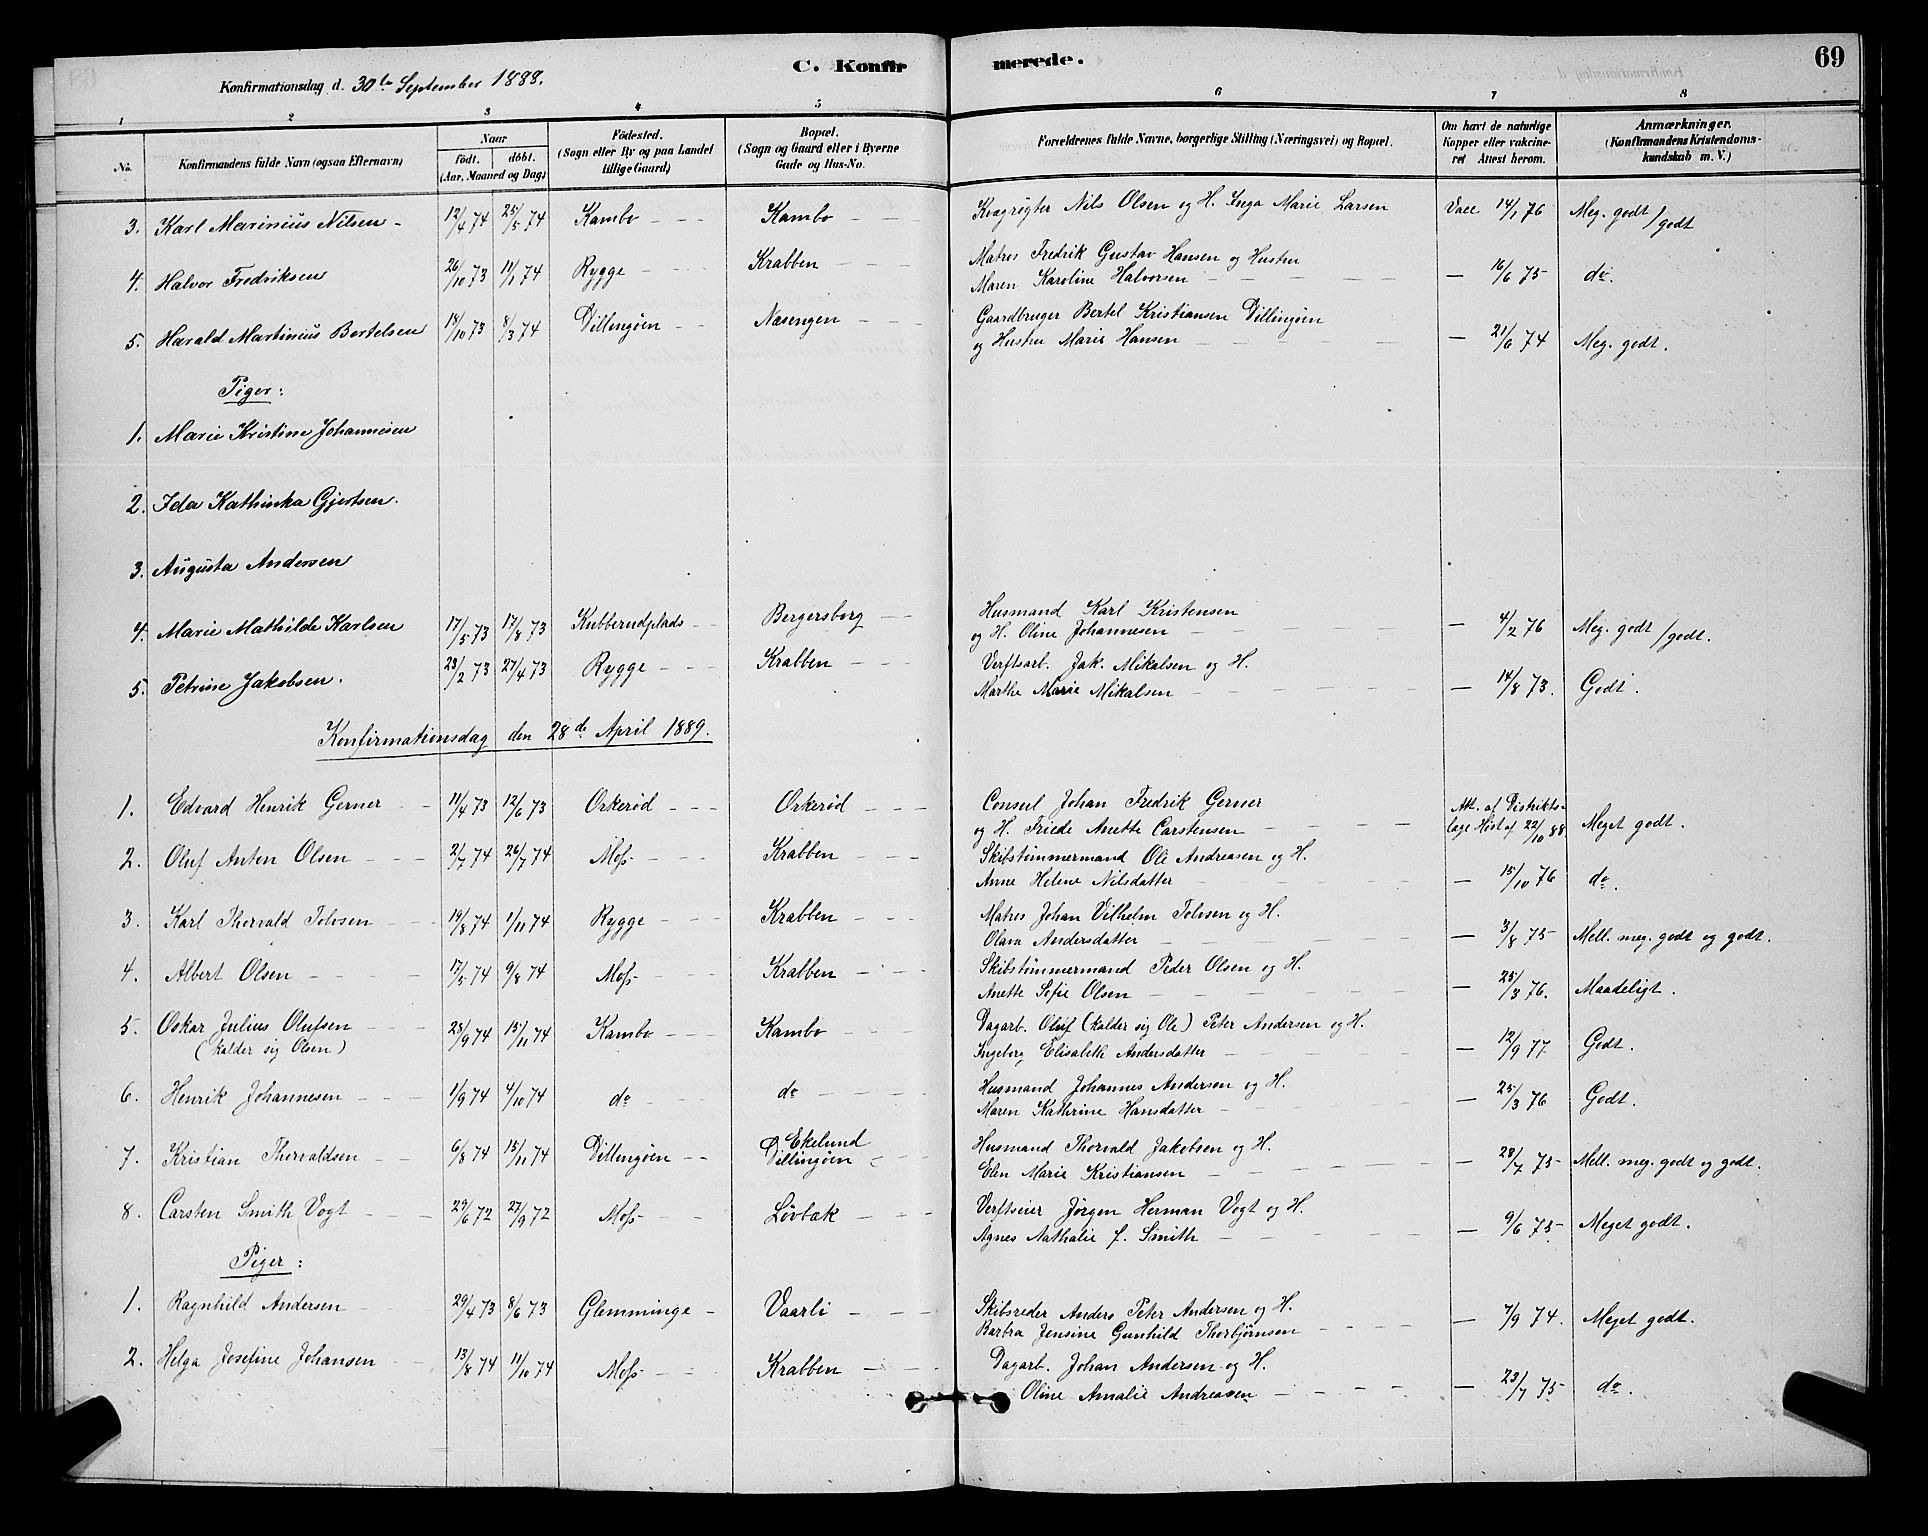 C. Konfirmerede. 69
Konfirmationsdag d. 30te September 1888.
1 2 3 4 5 6 7 8
No. Konfirmandens fulde Navn (ogsaa Efternavn) Naar födt. döbt. (Aar, Maaned og Dag) Födested. (Sogn eller By og paa Landet tillige Gaard) Bopæl. (Sogn og Gaard eller i Byerne Gade og Hus-No. Forældrenes fulde Navne, borgerlige Stilling (Næringsvei) og Bopæl. Om havt de naturlige Kopper eller vakcineret Attest herom. Anmærkninger. (Konfirmandens Kristendomskundskab m. V.)
3. Karl Marinius Nilsen - 12/4 74 25/5 74 Kambo Kambo Kvægrøgter Nils Olsen og H. Inga Marie Larsen Vacc 14/1 76 Meg. godt/godt
4. Halvor Fredriksen 26/10 73 11/1 74 Rygge Krabben Matros Fredrik Gustav Hansen og Hustru
Maren Karoline Halvorsen — 16/6 75 do.
5. Harald Martinius Bertelsen 18/10 73 8/3 74 Dillingöen Næsengen Gaardbruger Bertel Kristiansen Dillingöen
og Hustru Marie Hansen — 21/6 74 Meg. godt.
Piger:
1. Marie Kristine Johannesen
2. Ida Kathinka Gjertsen.
3. Augusta Andersen
4. Marie Mathilde Karlsen 17/5 73 17/8 73 Kubberudplads Bergersborg Husmand Karl Kristensen
og H. Oline Johannesen — 4/2 76 Meg. godt/godt.
5. Petrine Jakobsen. 23/2 73 27/4 73 Rygge Krabben Verftsarb. Jak. Mikalsen og H.
Marthe Marie Mikalsen — 14/8 73. Godt.
Konfirmationsdag den 28de April 1889.
1. Edvard Henrik Gerner 11/4 73 12/6 73 Orkeröd Orkeröd Consul Johan Fredrik Gerner
og H. Friede Anette Carstensen Att. af Distriktslæge Høst af 22/10 88. Meget godt.
2. Oluf Anton Olsen 2/7 74 26/7 74 Moss Krabben Skibstömmermand Ole Andreasen og H.
Anne Helene Nilsdatter — 15/10 76 do.
3. Karl Thorvald Tolvsen 19/8 74 1/11 74 Rygge Krabben Matros Johan Vilhelm Tolvsen og H.
Olava Andersdatter — 3/8 75 Mell. meg. godt og godt.
4. Albert Olsen 17/5 74 9/8 74 Moss Krabben Skibstömmermand Peder Olsen og H.
Anette Sofie Olsen — 25/3 76. Maadeligt.
5. Oskar Julius Olufsen 25/9 74 15/11 74 Kambo Kambo Dagarb. Oluf (kalder sig Ole) Peter Andersen og H.
(kalder sig Olsen) Ingeborg Elisabeth Andersdatter — 12/9 77 Godt.
6. Henrik Johannesen 1/9 74 4/10 74 do do Husmand Johannes Andersen og H.
Maren Kathrine Hansdatter — 25/3 76 Godt.
7. Kristian Thorvaldsen 6/8 74 15/11 74 Dillingöen Ekelund Dillingöen Husmand Thorvald Jakobsen og H.
Elen Marie Kristiansen — 28/7 75 Mell. meg. godt og godt.
8. Carsten Smith Vogt 29/6 72 27/9 72 Moss Lövbak Verftseier Jørgen Herman Vogt og H.
Agnes Nathalie f. Smith — 9/6 75 Meget godt.
Piger:
1. Ragnhild Andersen 29/4 73 8/6 73 Glemminge Vaarli Skibsreder Anders Peter Andersen og H.
Barbra Jensine Gunhild Thorbjørnsen — 7/9 74. Meget godt.
2. Helga Josefine Johansen 13/8 74 11/10 74 Moss Krabben Dagarb. Johan Andersen og H.
Oline Amalie Andreasen — 23/7 75 do.